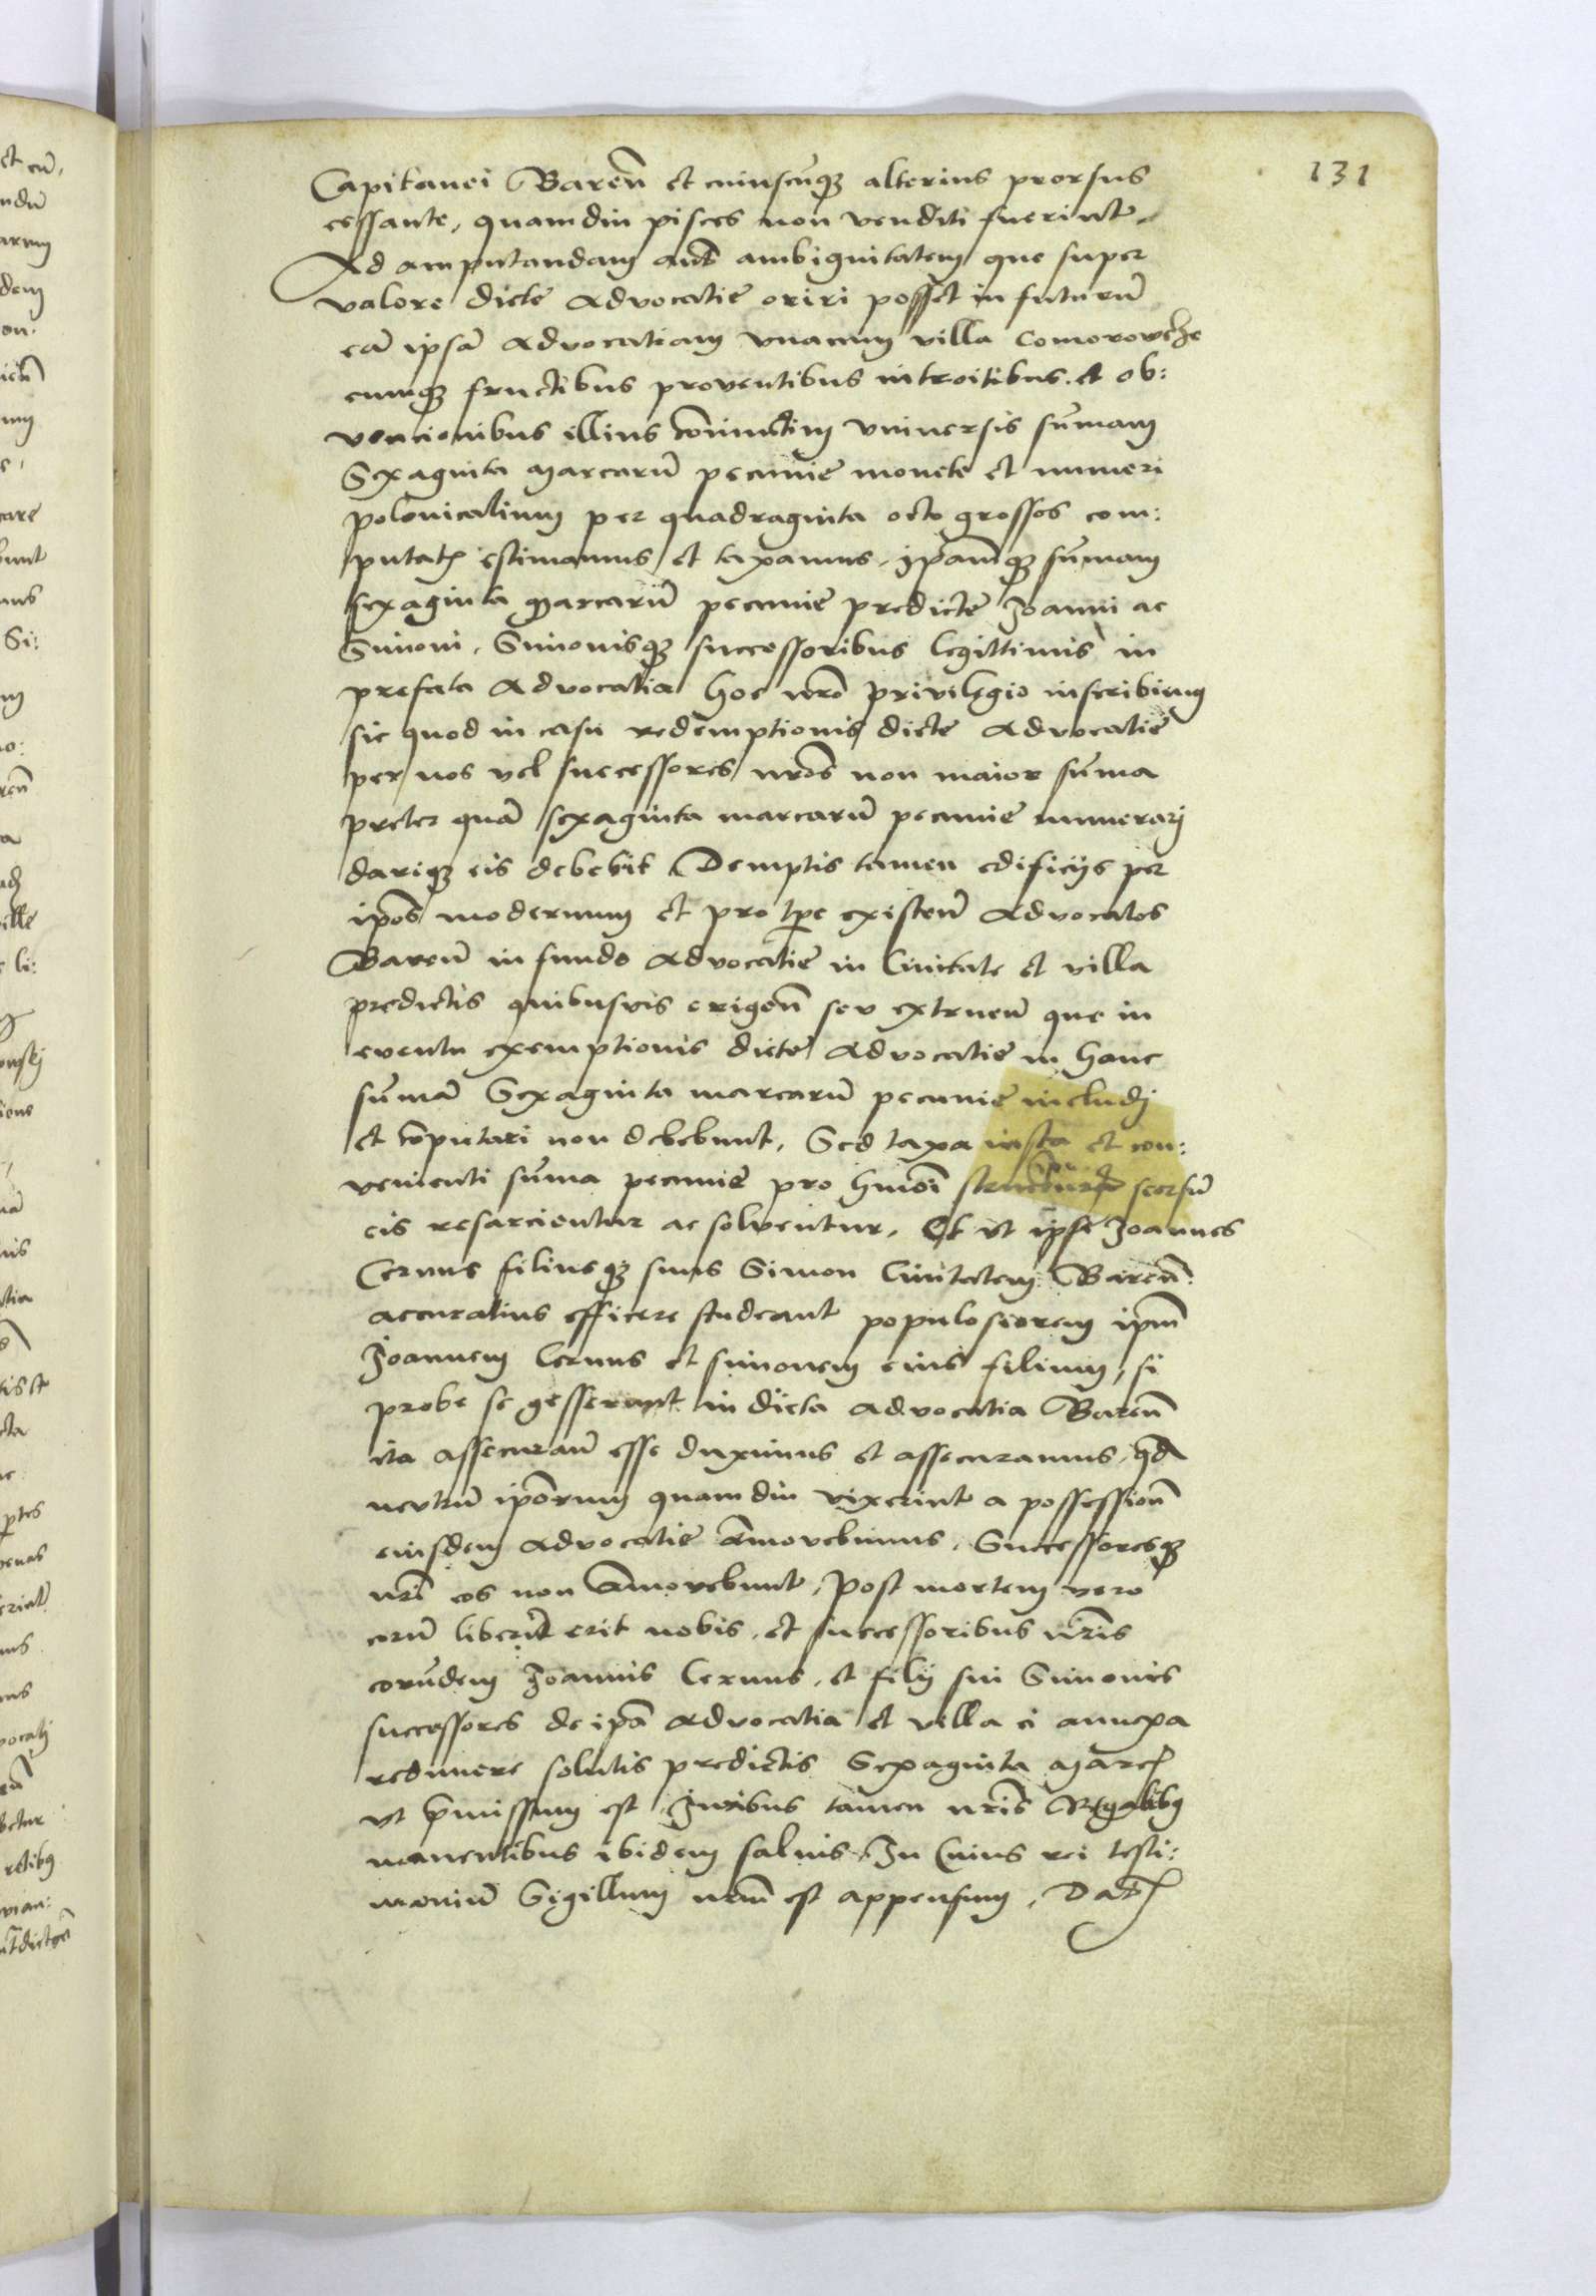 131
Capitanei Bareñ et cuiuscūqꝫ alterius prorsus
cessante, quamdiu pisces non venditi fuerint.
Ad amputandam aut̄ ambiguitatem que super
valore dicte Advocatie oriri posset in futurū
eā ipsā Advocatiam vnacum villa Comorowcze
cumqꝫ fructibus proventibus introitibus et ob:
vencionibus illius cōniunctim vniuersis sūmam
Sexaginta marcarū pecunie monete et numeri
polonicalium per quadraginta octo grossos com:
putatꝭ estimamus et taxamus, ip̄amqꝫ sūmam
sexaginta Marcarū pecunie predicte Joanni ac
Simoni, Simonisqꝫ successoribus legittimis in
prefata Advocatia hoc nr̄o privilegio inscribimus
sic quod in casu redemptionis dicte Advocatie
per nos vel successores nr̄os non maior sūma
preter quā sexaginta marcarū pecunie numerari
dariqꝫ eis debebit Demptis tamen edificijs per
ip̄os modernum et pro tp̄e existeñ Advocatos
Bareñ in fundo Advocatie in Civitate et villa
predictis quibusvis erigeñ seu extrueñ que in
eventu exemptionis dicte Advocatie in hanc
sūmā Sexaginta marcarū pecunie includj
et cōputari non debebunt, Sed taxa iusta et con:
venienti sūma pecunie pro hmōi seorsū
eis resarcientur ac solventur. Et vt ipse Joannes
Cernus filiusqꝫ suus Simon Civitatem Bareñ
accuratius efficere studeant populosiorem ipm̄
Joannem Cernus et Simonem eius filium, si
probe se gesserint in dicta Advocatia Bareñ
ita assecurañ esse duximus et assecuramus, qd̄
neutrū ip̄orum quamdiu vixerint a possessioñ
eiusdem Advocatie Amovebimus, Successoresqꝫ
nr̄i eos non Amovebunt, Post mortem vero
eorū liberū erit nobis, et successoribus nr̄is
eorūdem Joannis Cernus, et filij sui Simonis
successores de ip̄a Advocatia et villa ei annexa
redimere solutis predictis Sexaginta Marcꝭ
vt p̄missum est Juribus tamen nr̄is Regalibꝯ
manentibus ibidem salvis. In Cuius rei testi:
moniū Sigillum nr̄m est appensum. Datꝭ